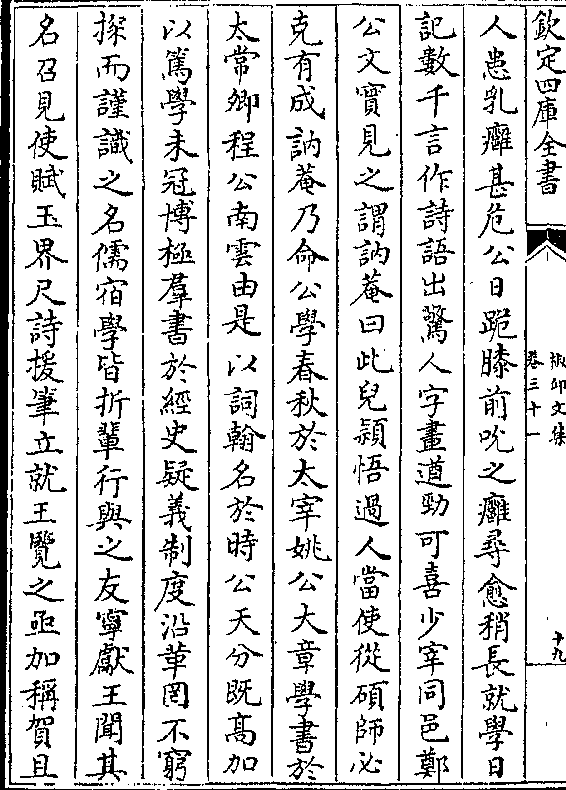 欽定四庫全書
椒邱文集
卷三十一
十九
人患乳癰甚危公日跪膝前吮之癰尋愈稍長就學日
記數千言作詩語出驚人字畫遒勁可喜少宰同邑鄭
公文實見之謂訥菴曰此兒頴悟過人當使從碩師必
克有成訥菴乃命公學春秋於太宰姚公大章學書於
太常卿程公南雲由是以詞翰名於時公天分既髙加
以篤學未冠博極羣書於經史疑義制度沿革罔不窮
探而謹識之名儒宿學皆折輩行與之友寧獻王聞其
名召見使賦玉界尺詩援筆立就王覽之亟加稱賀且